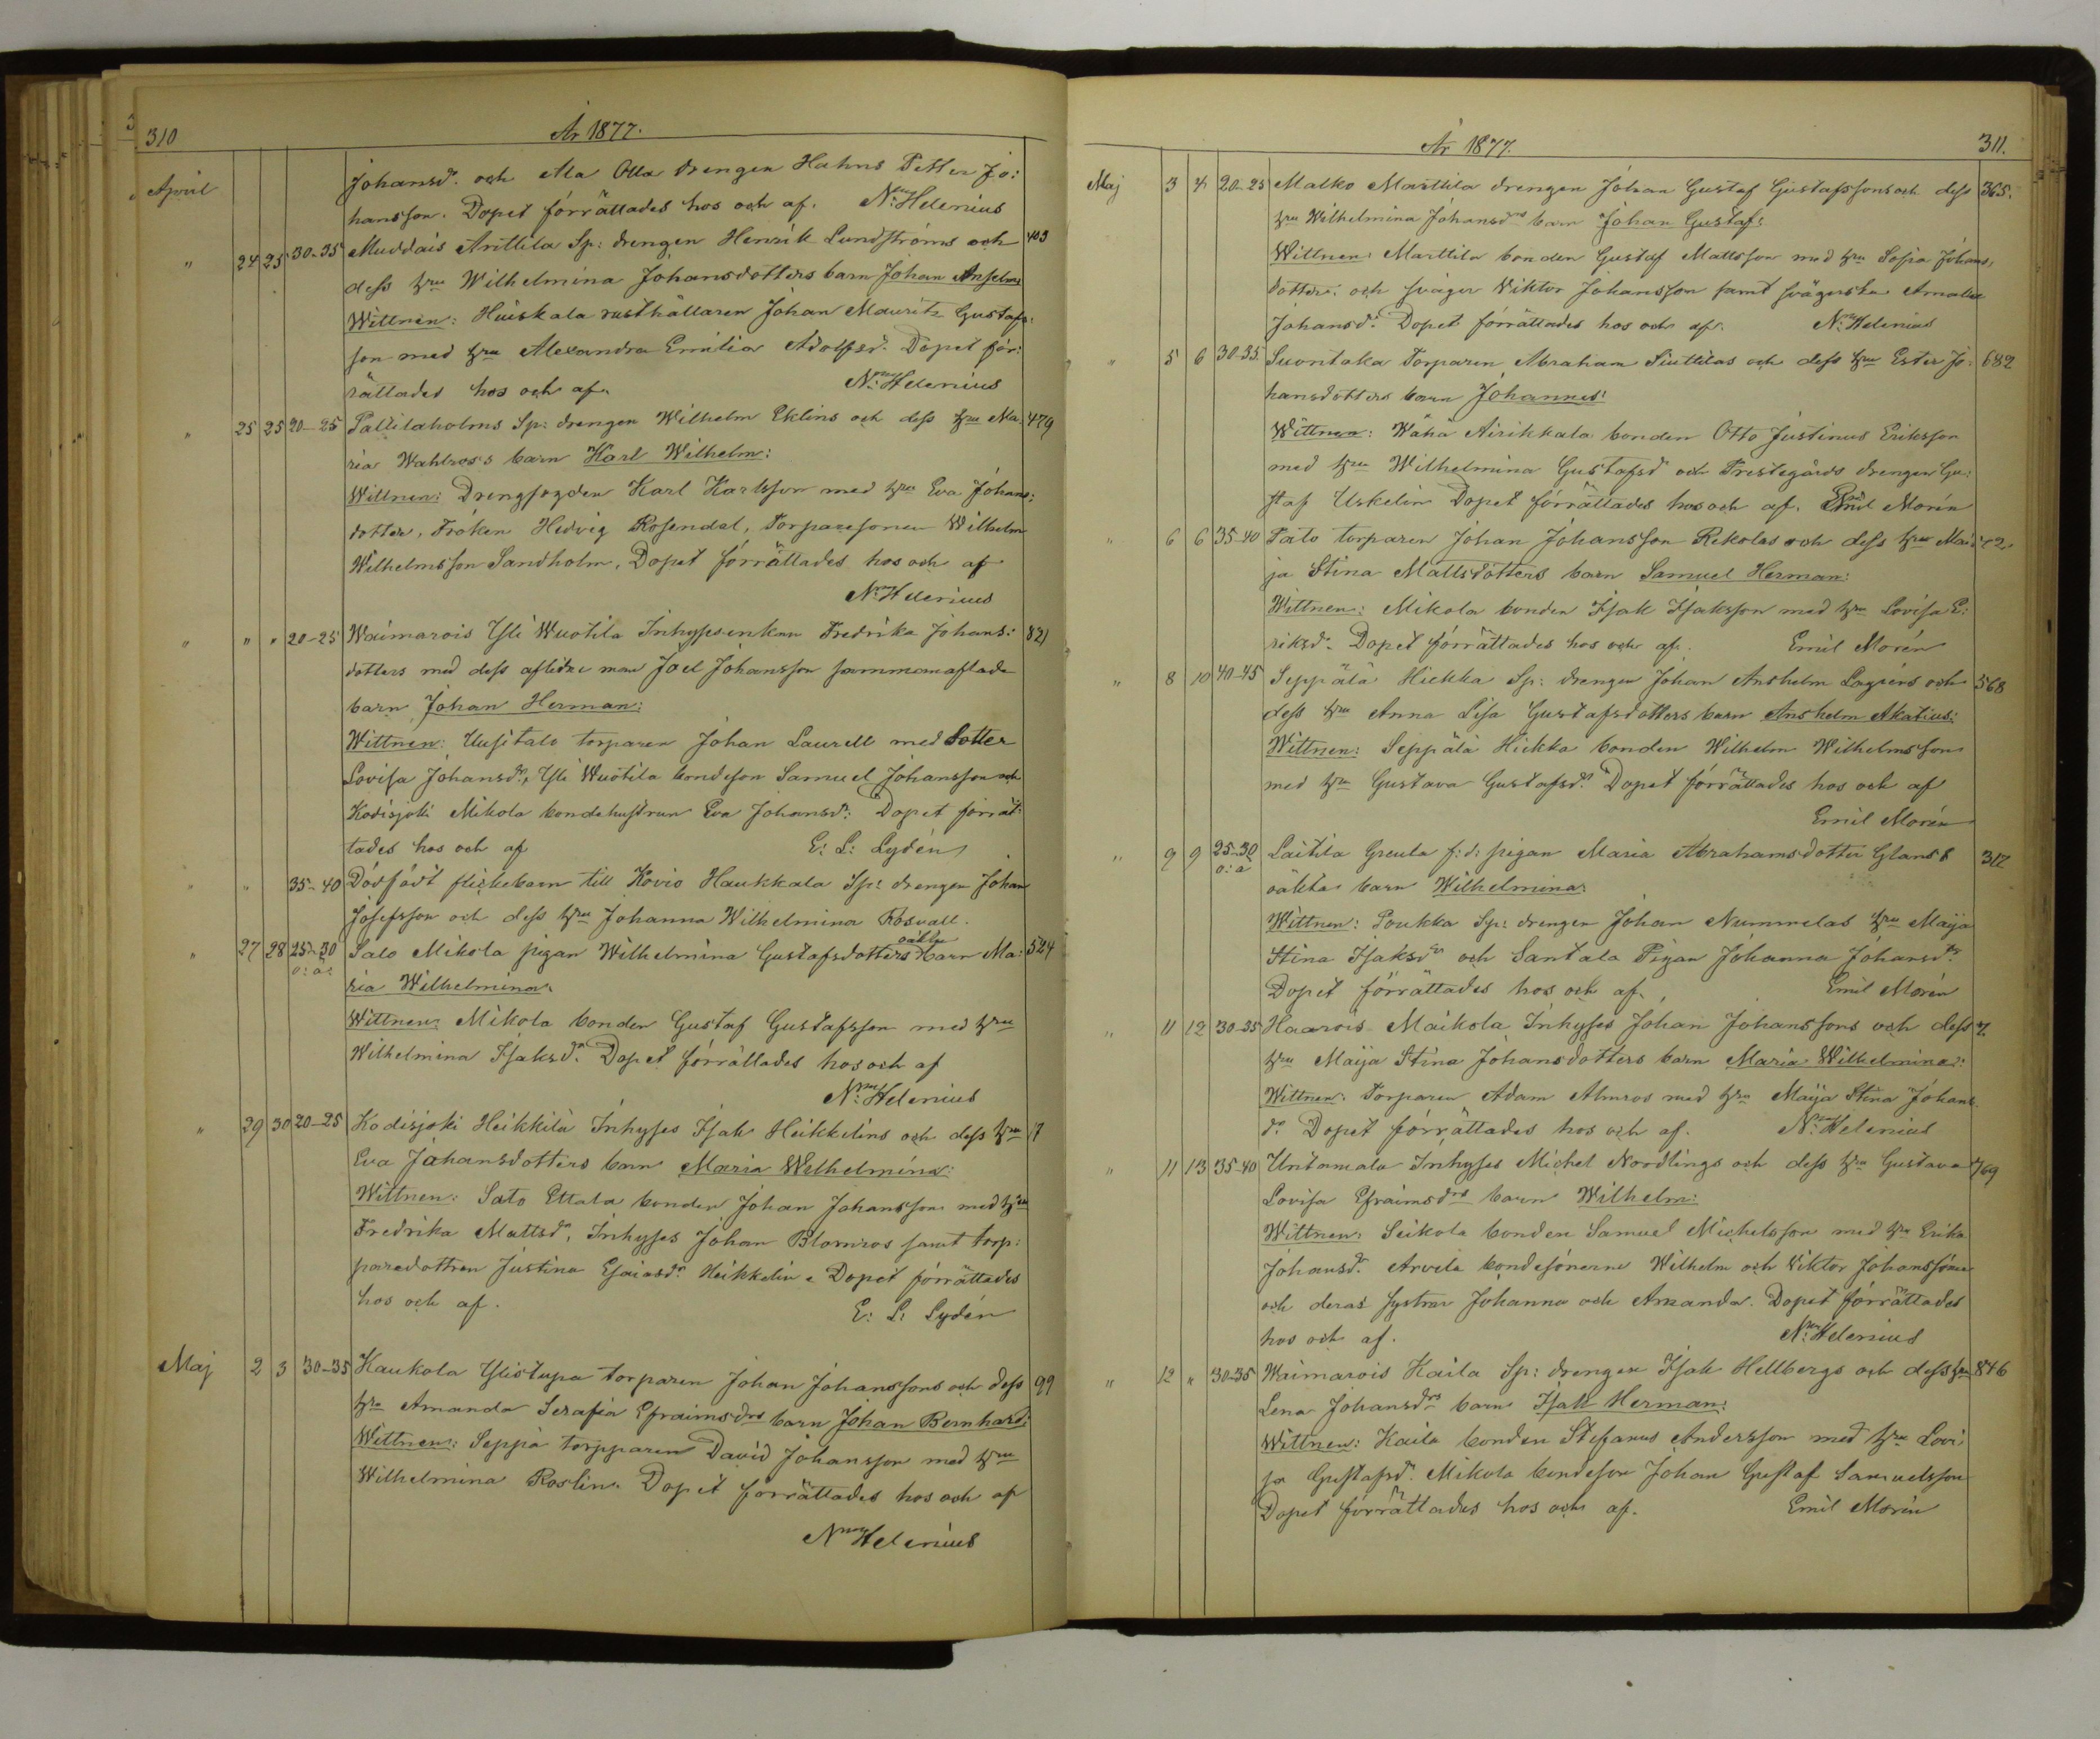 310
År 1877.
April
Johansdr. och Ala Olla drengen Hahns Petter Jo:
hansson. Dopet förrättades hos och af. Nm Helenius
" 24 25 30-35 Muddais Anttila Sp: drengen Henrik Lundströms och 403
dess hru Wilhelmina Johansdotters barn Johan Anselm
Wittnen: Huiskala rusthållaren Johan Mauritz Gustafs:
son med hru Alexandra Emilia Adolfsdr. Dopet för:
rättades hos och af. Nm Helenius
" 25 25 20-25 Palttilaholms Sp: drengen Wilhelm Eklins och dess hru Ma: 479
ria Wahlross's barn Karl Wilhelm:
Wittnen: Drengfogden Karl Karlsson med hru Eva Johans:
dotter, Fröken Hedvig Rosendal, Torparesonen Wilhelm
Wilhelmsson Sandholm. Dopet förrättades hos och af
Nm Helenius
" " " 20-25 Waimarois Yli Wuotila Inhysesenkan Fredrika Johans: 821
dotters med dess aflidne man Joel Johansson sammanaflade
barn Johan Herman:
Wittnen: Uusitalo torparen Johan Laurell med dotter
Lovisa Johansdr, Yli Wuotila bondeson Samuel Johansson och
Kodisjoki Mikola bondehustrun Eva Johansdr: Dopet förrät:
tades hos och af E: L: Lydén
" " 35-40 Dödfödt flickebarn till Kovio Haukkala Sp: drengen Johan
Josefsson och dess hru Johanna Wilhelmina Rosvall.
" 27 28 25-30 Salo Mikola pigan Wilhelmina Gustafsdotters oäkta barn Ma: 524
o: ä:
ria Wilhelmina.
Wittnen: Mikola bonden Gustaf Gustafsson med hru
Wilhelmina Isaksdr. Dopet förrättades hos och af
Nm Helenius
" 29 30 20-25 Kodisjoki Heikkilä Inhyses Isak Heikkelins och dess hru 17
Eva Johansdotters barn Maria Wilhelmina:
Wittnen: Sato Ettala bonden Johan Johansson med hru
Fredrika Mattsdr, Inhyses Johan Blomros samt torp:
paredottren Justina Esaiasdr Heikkelin. Dopet förrättades
hos och af. E: L: Lydén
Maj 2 3 30-35 Kaukola Ylistupa torparen Johan Johanssons och dess 99
hru Amanda Serafia Efraimsdrs barn Johan Bernhard:
Wittnen: Seppä torpparen David Johansson med hru
Wilhelmina Roslin. Dopet förrättades hos och af
Nm Helenius
År 1877.
311.
Maj 3 4 20-25 Malko Marttila drengen Johan Gustaf Gustafssons och dess 365.
hru Wilhelmina Johansdrs barn Johan Gustaf:
Wittnen: Marttila bonden Gustaf Mattsson med hru Sofia Johans:
dotter: och svåger Viktor Johansson samt svägerska Amalia
Johansdr. Dopet förrättades hos och af. Nm Helenius
" 5 6 30-35 Suontaka Torparen Abraham Siuttilas och dess hru Ester Jo: 682
hansdotters barn Johannes:
Wittnen: Wähä Airikkala bonden Otto Justinus Eriksson
med hru Wilhelmina Gustafsdr och Prestegårds drengen Gu:
staf Uskelin Dopet förrättades hos och af. Emil Morén
" 6 6 35-40 Pato torparen Johan Johansson Rekolas och dess hru Mai:
ja Stina Mattsdotters barn Samuel Herman:
Wittnen: Mikola bonden Isak Isaksson med hru Lovisa E:
riksdr. Dopet förrättades hos och af. Emil Morén
" 8 10 40-45 Seppälä Hiekka Sp: drengen Johan Anshelm Lagréns och 568
dess hru Anna Lisa Gustafsdotters barn Anshelm Akatius:
Wittnen: Seppälä Hiekka bonden Wilhelm Wilhelmsson
med hru Gustava Gustafsdr. Dopet förrättades hos och af
Emil Morén
" 9 9 25-30 Laitila Greula f: d: pigan Maria Abrahamsdotter Glans's 312
o: ä
oäkta barn Wilhelmina:
Wittnen: Poukka Sp: drengen Johan Nummelas hru Maija
Stina Isaksdr och Santala Pigan Johanna Johansdr.
Dopet förrättades hos och af. Emil Morén
" 11 12 30-35 Haarois Maikola Inhyses Johan Johanssons och dess 7.
hru Maija Stina Johansdotters barn Maria Wilhelmina:
Wittnen: Torparen Adam Almros med hru Maija Stina Johans
dr. Dopet förrättades hos och af. Nm Helenius
" 11 13 35-40 Untamala Inhyses Michel Nordlings och dess hru Gustava 769
Lovisa Efraimsdrs barn Wilhelm:
Wittnen: Seikola bonden Samuel Michelsson med hru Erika
Johansdr. Arvela bondesönerne Wilhelm och Viktor Johanssöner
och deras systrar Johanna och Amanda. Dopet förrättades
hos och af. Nm Helenius
" 12 " 30-35 Waimarois Kaila Sp: drengen Isak Hellbergs och dess hru 846
Lena Johansdrs barn Isak Herman:
Wittnen: Kaila bonden Stefanus Andersson med hru Lovi
sa Gustafsdr. Mikola bondeson Johan Gustaf Samuelsson
Dopet förrättades hos och af. Emil Morén